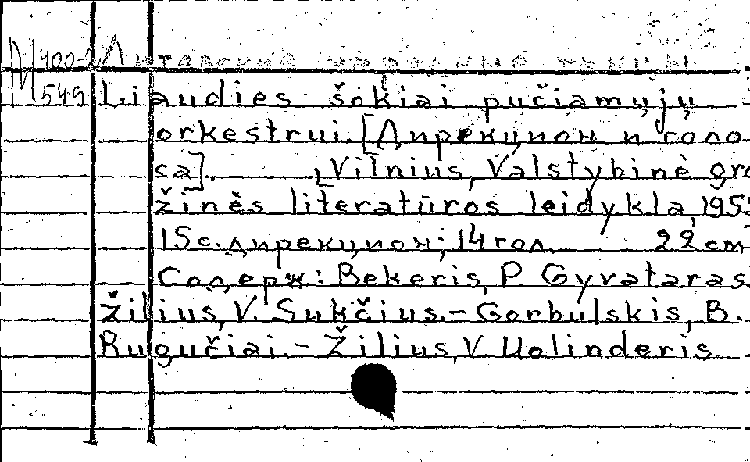 М 700-2 Литовские народные танцы
М 549 Liaudies šokiai pučiamųjų
orkestrui. [Дирекцион и голо
са]. [Vilnius, Valstybinė gro
žinės literatūros leidykla, 195
15с. дирекцион; 14 гол. 22 cm
Содерж: Bekeris, P Gyvataras
Žilius, V. Sukčius.- Gorbulskis, B.
Rugučiai.- Žilius, V Uolinderis